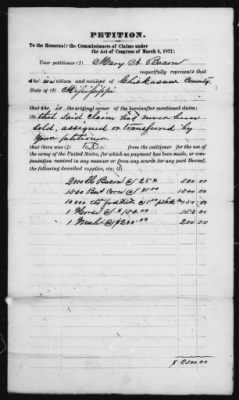 PETITION.
To the Honorable the Commissioners of Claims under
the Act of Congress of March 3, 1871:
Your petitioner Mary A.
respectfully represents that
she is a citizen and resident of Chickasaw County
State of Mississippi
that she is the original owner of the hereinafter mentioned claim:
that said claim has never been
sold, assigned or transferred by
your petitioner
that there was taken from the petitioner for the use of the
army of the United States, for which no payment has been made, or com-
pensation received in any manner or from any source for any part thereof,
the following described supplies, viz:
2000 lb Bacon @ 25¢ 500.00
1500 Bus Corn @ $1.00 1500.00
1 Horse @ $150.00 150.00
1 Mule @ $200.00 200.00
$2500.00